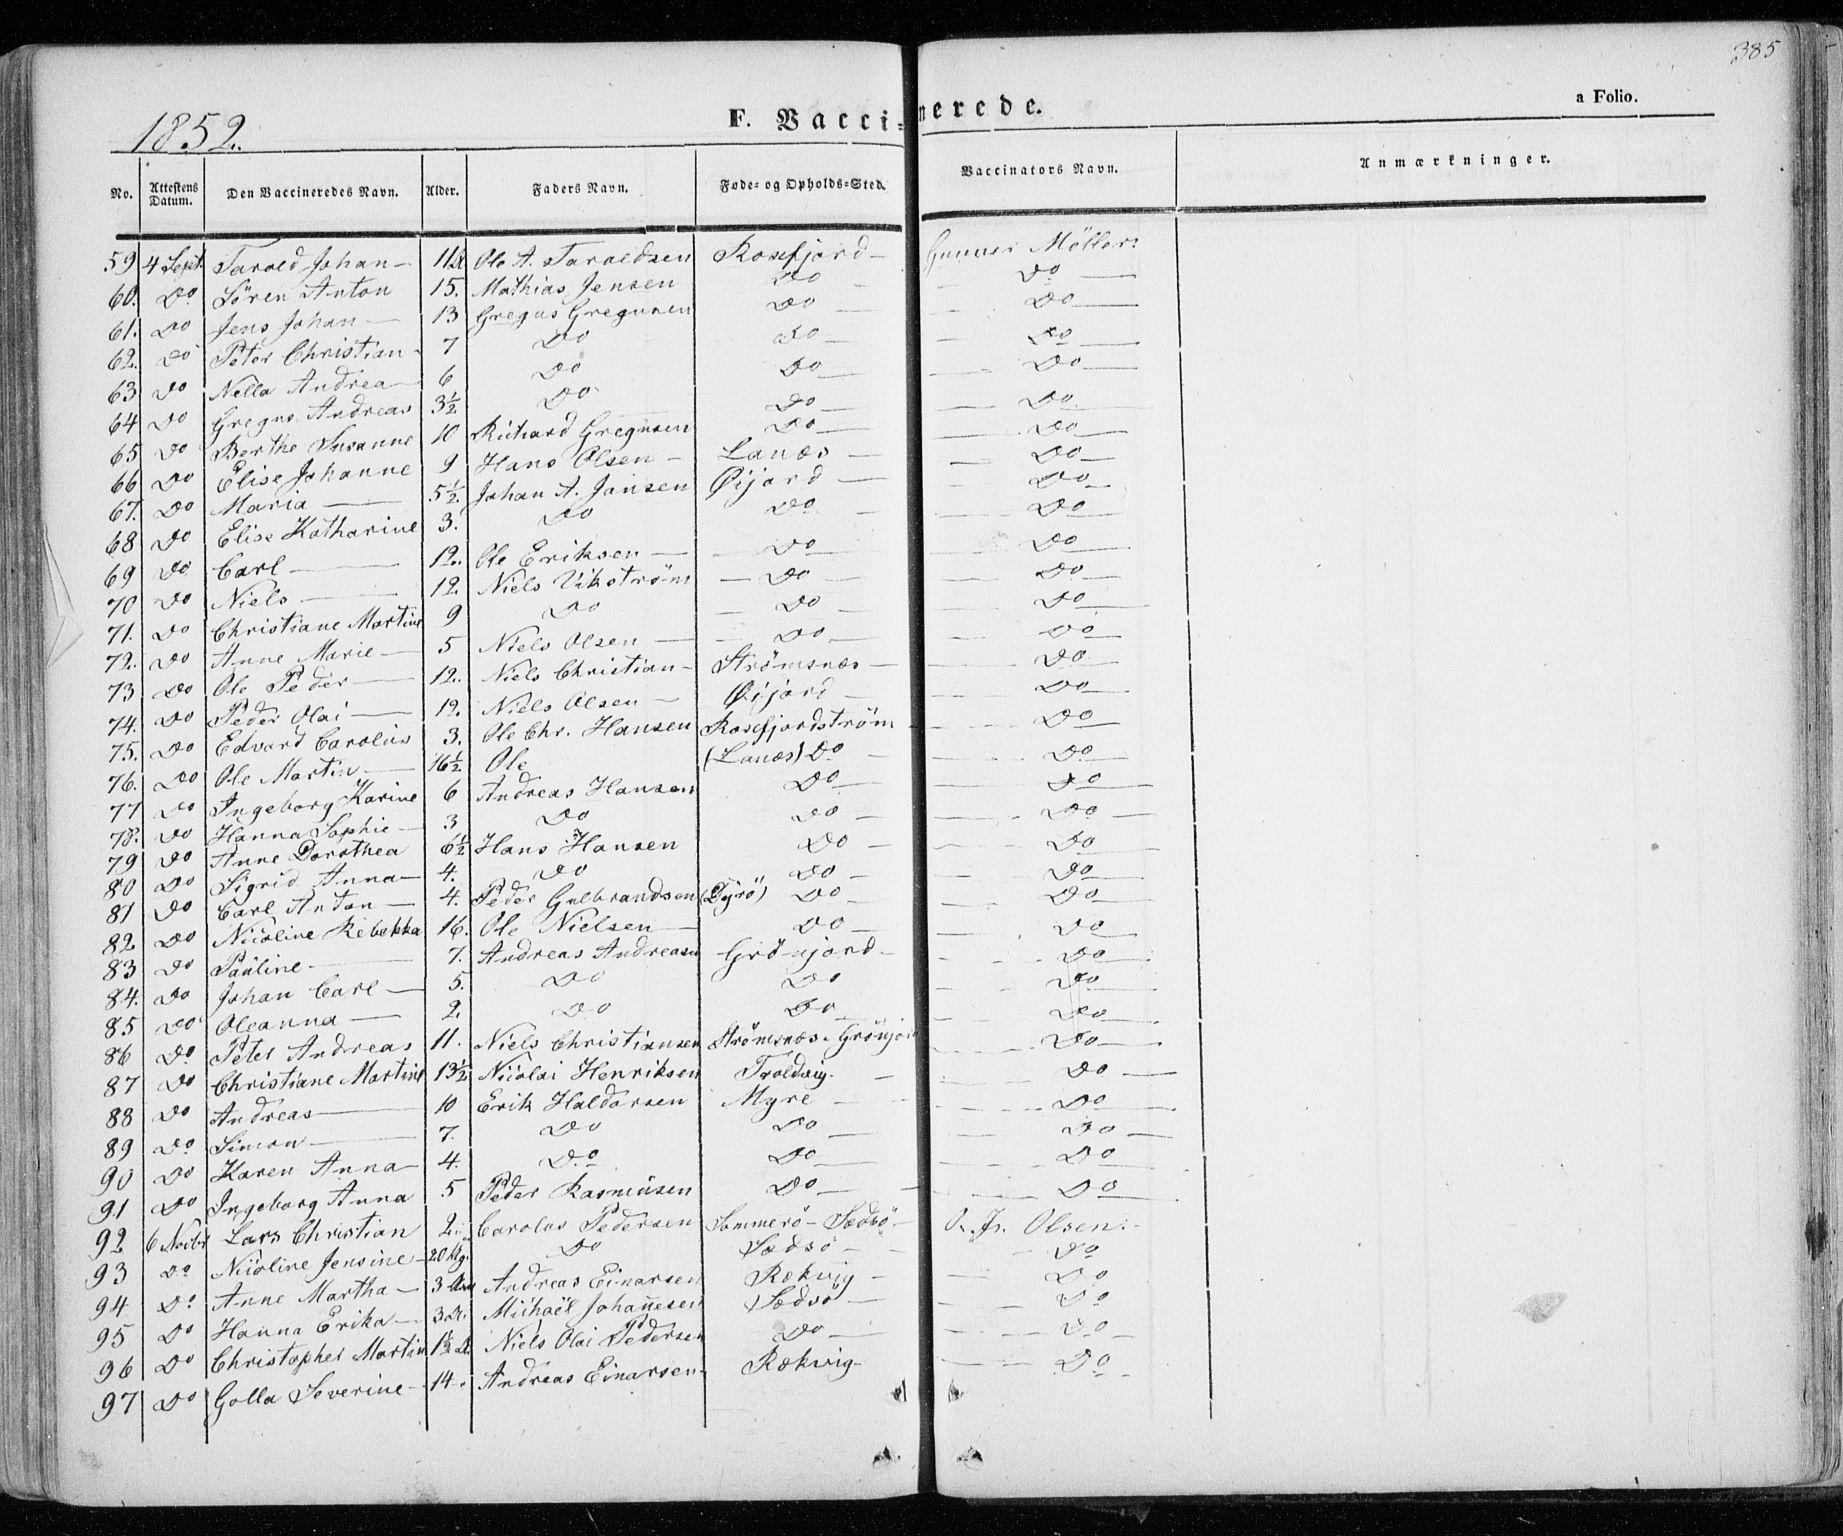 385
1852.
F. Vaccinerede.
a Folio.
No. Attestens Datum. Den Vaccineredes Navn. Alder. Faders Navn. Føde- og Opholds-Sted. Vaccinators Navn. Anmærkninger.
59 4 Sept. Tarald Johan 11 Ole A. Taraldsen Rosefjord Møller
60. Do Sören Anton 15. Mathias Jensen Do Do
61. Do Jens Johan 13 Gregus Gregusen Do Do
62. Do Peter Christian 7 Do Do Do
63 Do Nella Andrea 6 Do Do Do
64 Do Gregus Andreas 3½ Do Do Do
65 Do Berthe Susanne 10 Richard Gregusen Do Do
66 Do Elise Johanne 9 Hans Olsen Lanæs Do
67. Do Maria 5½. Johan A. Jansen Øijord Do
68 Do Elise Katharine 3. Do Do Do
69 Do Carl 12. Ole Eriksen Do Do
70 Do Niels 12. Niels Vikström Do Do
71. Do Christiane Martine 9 Do Do Do
72. Do Anne Marie 5 Niels Olsen Do Do
73 Do Ole Peder 12. Niels Christian Strømsnæs Do
74. Do Peder Olai 12. Niels Olsen Øijord Do
75. Do Edvard Carolius 3. Ole Chr. Hansen Rosefjordström Do
76. Do Ole Martin 16½ Ole (Lanæs) Do Do
77 Do Ingeborg Karine 6 Andreas Hansen Do Do
78. Do Hanna Sophie 3 Do Do Do
79 Do Anne Dorothea 6½ Hans Hansen Do Do
80 Do Sigrid Anna 4. Do Do Do
81 Do Carl Anton 4. Peder Gulbrandsen (Dyrö) Do Do
82 Do Nicoline Rebekka 16. Ole Nielsen Do Do
83 Do Pauline 7. Andreas Andreasen Grönjord Do
84. Do Johan Carl 5. Do Do Do
85 Do Oleanna 2. Do Do Do
86 Do Peter Andreas 11. Niels Christiansen Strömsnæs Grönjord Do
87 Do Christiane Martine 13½ Nicolai Henriksen Troldvig Do
88 Do Andreas 10 Erik Haldorsen Myre Do
89 Do Simon 7. Do Do Do
90 Do Karen Anna 4. Do Do Do
91 Do Ingeborg Anna 5 Peder Rasmusen Do Do
92 6 Novbr Lars Christian 2. Carolus Pedersen Sommerö O. Js. Olsen
93 Do Nicoline Jensine 20 Do Do
94 Do Anne Martha 3 Andreas Einarsen Rekvig Do
95 Do Hanna Erika 3 Michaël Johannesen Do
96 Do Christopher Martin 1½ Niels Olai Pedersen Do Do
97 Do Golla Severine 14 Andreas Einarsen Rekvig Do